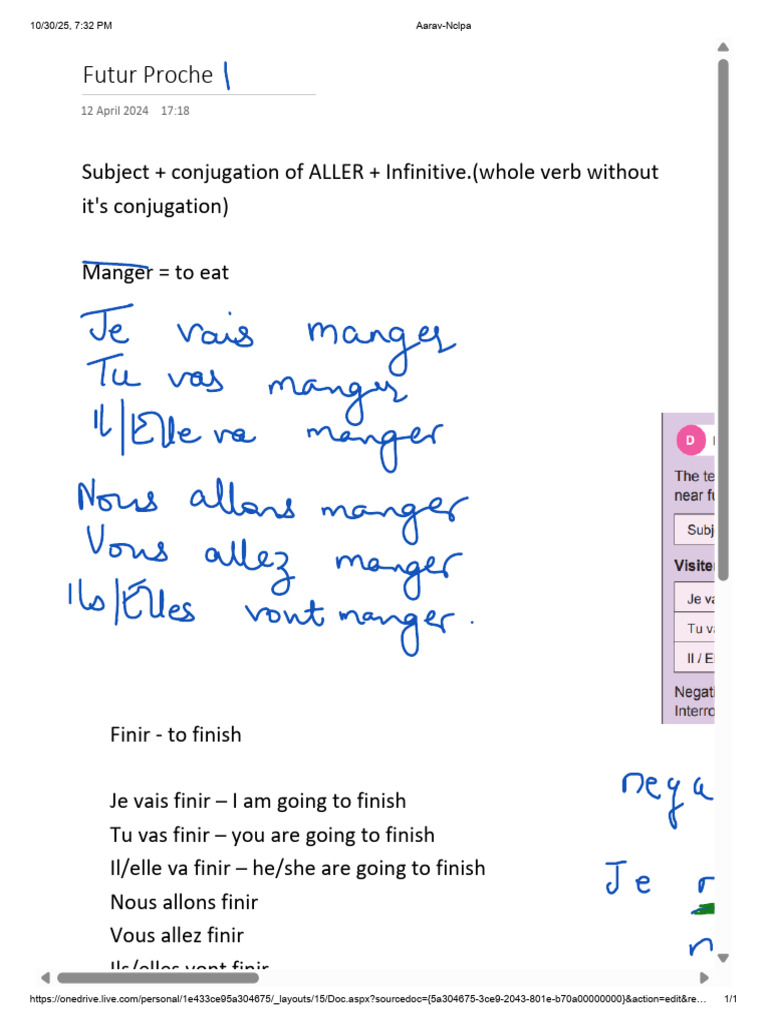 10/30/25, 7:32 PM
Aarav-Nclpa
Futur Proche 1
12 April 2024 17:18
Subject + conjugation of ALLER + Infinitive.(whole verb without
it's conjugation)
Manger = to eat
Je vais manger
Tu vas manger
Il/Elle va manger
Nous allons manger
Vous allez manger
Ils/Elles vont manger.
D
The te
near fu
Subj
Visite
Je va
Tu va
Il / E
Negati
Interro
Finir - to finish
Je vais finir – I am going to finish
Tu vas finir – you are going to finish
Il/elle va finir – he/she are going to finish
Nous allons finir
Vous allez finir
Ils/elles vont finir
nega
Je n
n
https://onedrive.live.com/personal/1e433ce95a304675/_layouts/15/Doc.aspx?sourcedoc={5a304675-3ce9-2043-801e-b70a00000000}&action=edit&re…
1/1